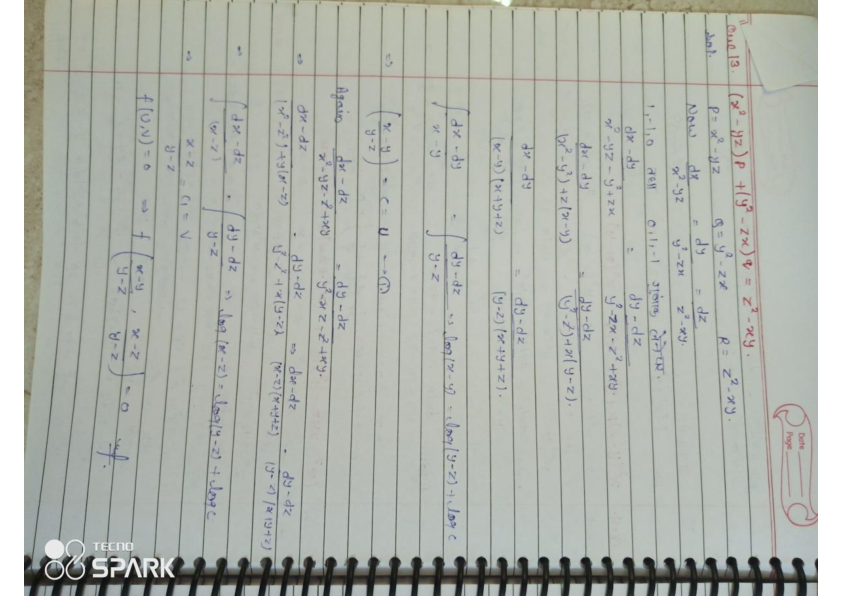 Date
Page
Que 13. (x²-yz)p + (y²-zx)q = z²-xy.
Sol.
P = x²-yz   Q = y²-zx   R = z²-xy.
Now dx/x²-yz = dy/y²-zx = dz/z²-xy.
1,-1,0 0,1,-1
dx-dy/x²-yz-y²+zx = dy-dz/y²-zx-z²+xy.
dx-dy/(x²-y²)+z(x-y) = dy-dz/(y²-z²)+x(y-z).
dx-dy/(x-y)(x+y+z) = dy-dz/(y-z)(x+y+z).
∫ dx-dy/x-y = ∫ dy-dz/y-z ⇒ log(x-y) = log(y-z) + log c
⇒ (x-y/y-z) = c = u —①
Again dx-dz/x²-yz-z²+xy = dy-dz/y²-xz-z²+xy.
⇒ dx-dz/(x²-z²)+y(x-z) = dy-dz/y²-z²+x(y-z) ⇒ dx-dz/(x-z)(x+y+z) = dy-dz/(y-z)(x+y+z)
⇒ ∫ dx-dz/(x-z) = ∫ dy-dz/y-z ⇒ log(x-z) = log(y-z) + log c
⇒ x-z/y-z = c₁ = v
f(u,v) = 0 ⇒ f(x-y/y-z, x-z/y-z) = 0
TECNO
SPARK